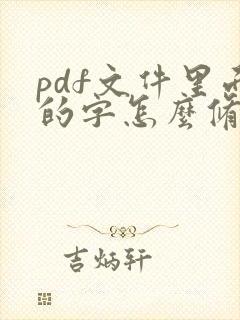 pdf文件里
的字怎麼
吉炳轩